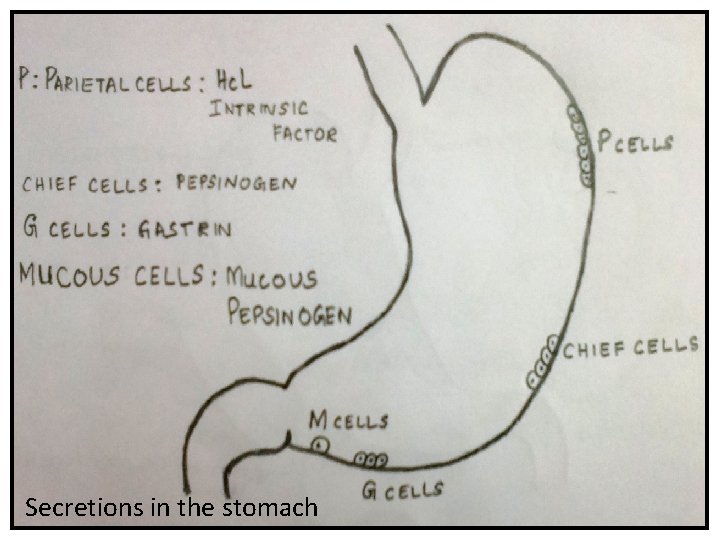 P: PARIETAL CELLS: HCL
INTRINSIC
FACTOR
CHIEF CELLS: PEPSINOGEN
G CELLS: GASTRIN
MUCOUS CELLS: MUCOUS
PEPSINOGEN
P CELLS
CHIEF CELLS
M CELLS
G CELLS
Secretions in the stomach